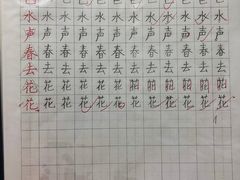 水 水 水 水 水 水 水 水 水 水 水
声 声 声 声 声 声 声 声 声 声 声
春 春 春 春 春 春 春 春 春 春 春
去 去 去 去 去 去 去 去 去 去 去
花 花 花 花 花 花 花 花 花 花 花
花 花 花 花 花 花 花 花 花 花 花